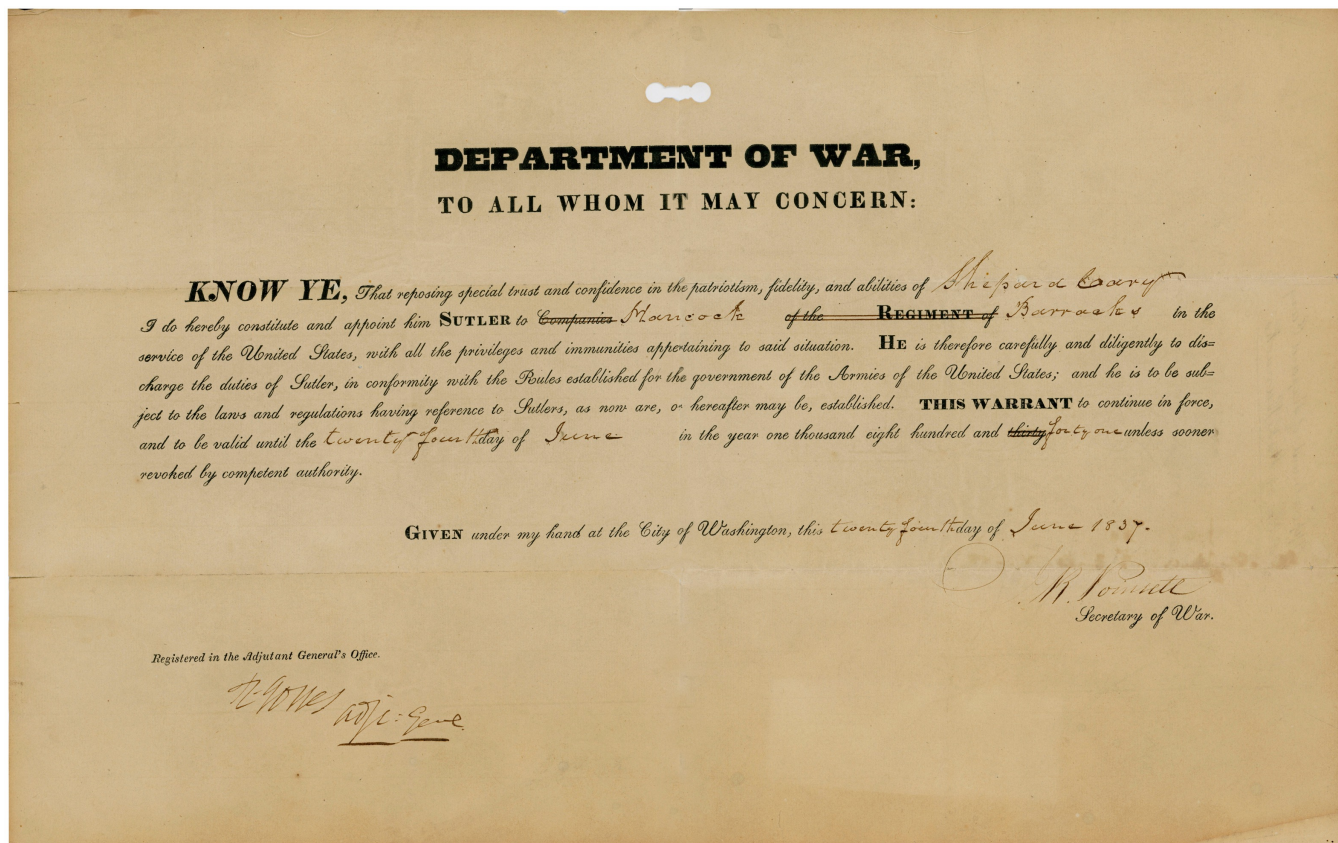 DEPARTMENT OF WAR,
TO ALL WHOM IT MAY CONCERN:
KNOW YE, That reposing special trust and confidence in the patriotism, fidelity, and abilities of Shepard Cary
I do hereby constitute and appoint him SUTLER to Companies Hancock of the REGIMENT of Barracks in the
service of the United States, with all the privileges and immunities appertaining to said situation. HE is therefore carefully and diligently to dis=
charge the duties of Sutler, in conformity with the Rules established for the government of the Armies of the United States; and he is to be sub=
ject to the laws and regulations having reference to Sutlers, as now are, or hereafter may be, established. THIS WARRANT to continue in force,
and to be valid until the twenty fourth day of June in the year one thousand eight hundred and thirty forty one unless sooner
revoked by competent authority.
GIVEN under my hand at the City of Washington, this twenty fourth day of June 1837.
J R Poinsett
Secretary of War.
Registered in the Adjutant General's Office.
R. Jones
Adjt. Genl.